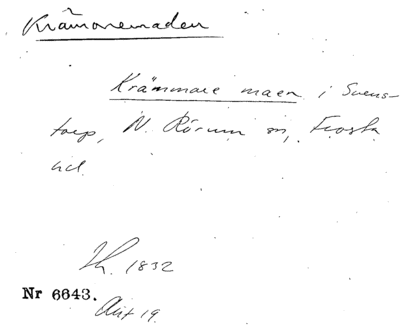 Krämaremaden
Krämmare maen i Svens-
torp, N. Rörum sn, Frosta
hd
1832
Nr 6643.
Akt 19.